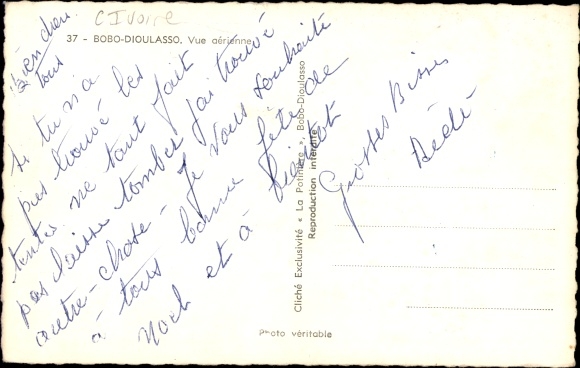 C Ivoire
37 - BOBO-DIOULASSO. Vue aérienne
bien dieu
tous
Si tu n'a
pas trouvé les
tentes ne tout fait
pas laisse tomber j'ai trouvé
autre-chose - Je vous souhaite
à tous bonne fête de
noel et à bientot
Grosses Bises
Dédé
Cliché Exclusivité « La Potinière », Bobo-Dioulasso
Reproduction interdite
Photo véritable